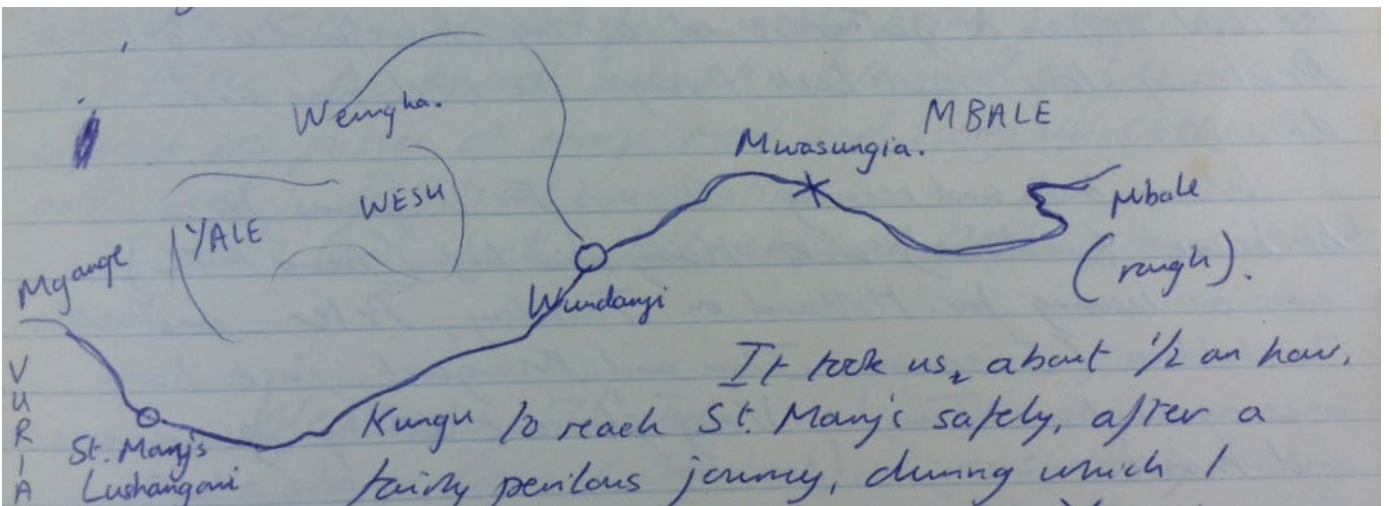 Wemgha.
MBALE
Mwasungia.
WESU
YALE
Mbale
(rough).
Mgange
Wundanyi
VURIA
St. Mary's
Lushangoni
Kungu
It took us, about 1/2 an hour,
to reach St. Mary's safely, after a
fairly perilous journey, during which I